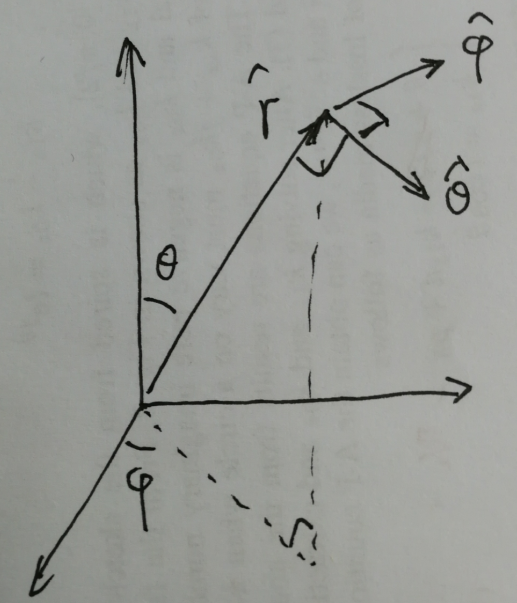 φ̂
r̂
θ̂
θ
φ